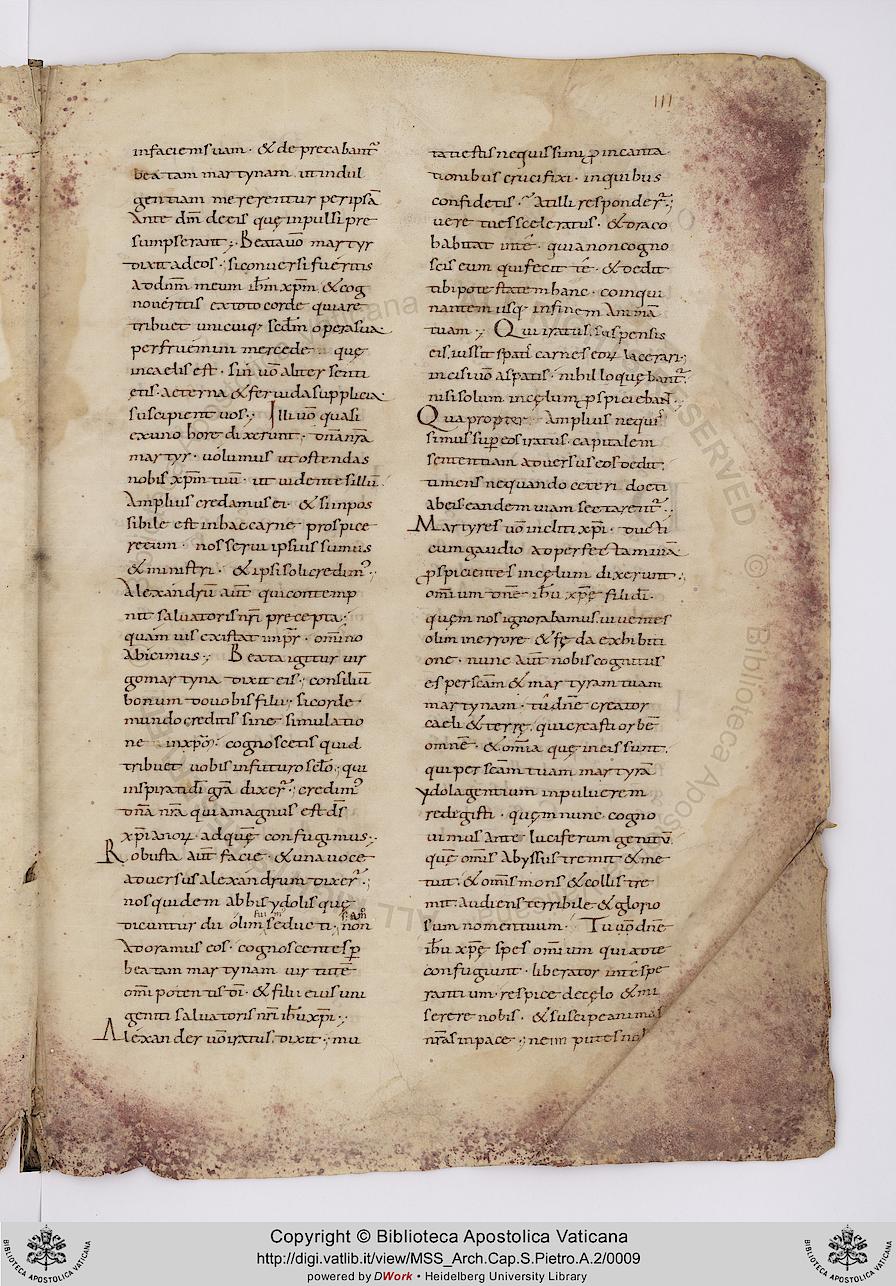 III
infaciem suam · & deprecabant᷑
beatam martynam · utindul
gentiam mererentur per ipsā
Ante dm̄ de eis quę inpulsi pre
sumpserant ; Beata uō martyr
dixit ad eos · si conuersi fueritis
Ad dn̄m meum ihm̄ xpm̄ · & cog
noueritis ex toto corde quia re
tribuet unicuiq; sedm̄ opera sua
perfruemini mercede · quę
in caelis est · sin uō aliter senti
etis · aeterna & feruida supplicia
suscipient uos ; Illi uō quasi
ex uno hore dixerunt · dn̄a nr̄a
martyr · uolumus ut ostendas
nobis xpm̄ tuū · ut uidentes illū
Amplius credamus ei · & si inpos
sibile est in hac carne prospice
re eum · nos serui ipsius sumus
& ministri · & ipsi soli credim᷑ ;
Alexandrū aut̄ qui contemp
nit saluatoris nr̄i precepta ;
quamuis existat impr̄ · omnino
Abicimus ; Beata igitur uir
go martyna dixit eis ; consiliū
bonum do uobis filii · si corde
mundo creditis sine simulatio
ne in xpō · cognoscetis quid
tribuet uobis in futuro sc̄lo ; qui
inspirati di gr̄a dixer᷑ ; credim᷑
dn̄a nr̄a quia magnus est ds̄
xp̄ianoꝝ · ad quę confugimus ;
Robusta aut̄ facie · & una uoce
aduersus alexandrum dixer᷑ ;
nos quidem ab his ydolis quę
dicuntur dii olim seducti · non
Adoramus eos · cognoscentes ꝑ
beatam martynam uirtutē
omīpotentis di · & filii eius uni
geniti saluatoris nr̄i ihū xp̄i ;
Alexander uō iratus · dixit ; mu
tati estis nequissimi ꝑ incanta
tionibus crucifixi · in quibus
confidetis ; At illi responder᷑ ;
uere tu es sceleratus · & draco
habitat in te · quia non cogno
scis eum qui fecit te · & dedit
tibi potestatem hanc · coinqui
nantem usq; in finem Animā
tuam ; Qui iratus suspensis
eis iussit spatis carnes eoꝝ lacerari ;
incisi uō a spatis · nihil loquębant᷑
nisi solum in cęlum ꝑspiciebant ;
Quapropter Amplius nequis
simus sup eos iratus · capitalem
sententiam aduersus eos dedit ;
timens nequando ceteri docti
ab eis eandem uiam sectarent᷑ ;
Martyres uō incliti xp̄i · ducti
cum gaudio ad perfectam uiā
ꝑspicientes in cęlum dixerunt ;
omīum dn̄e ihū xp̄e fili di ·
quęm nos ignorabamus uiuentes
olim in errore & fęda exhibiti
one · nunc aut̄ nobis cognitus
es per scām & martyram tuam
martynam · tu dn̄e creator
caeli & terrę · qui creasti orbē
omnē · & omīa quę in eis sunt ·
qui per scām tuam martyrā
ydola gentium in puluerem
redegisti · quęm nunc cogno
uimus ante luciferum genitū
quē omīs Abyssus tremit & me
tuit · & omīs mons & collis tre
mit · audiens terribile & glorio
sum nomen tuum · Tu uō dn̄e
ihū xp̄e spes omīum qui ad te
confugiunt · liberator in te spe
rantium · respice de cęlo & mi
serere nobis · & suscipe animas
nr̄as in pace ; ne
Copyright © Biblioteca Apostolica Vaticana
http://digi.vatlib.it/view/MSS_Arch.Cap.S.Pietro.A.2/0009
powered by DWork • Heidelberg University Library
BIBLIOTECA APOSTOLICA VATICANA
BIBLIOTECA APOSTOLICA VATICANA